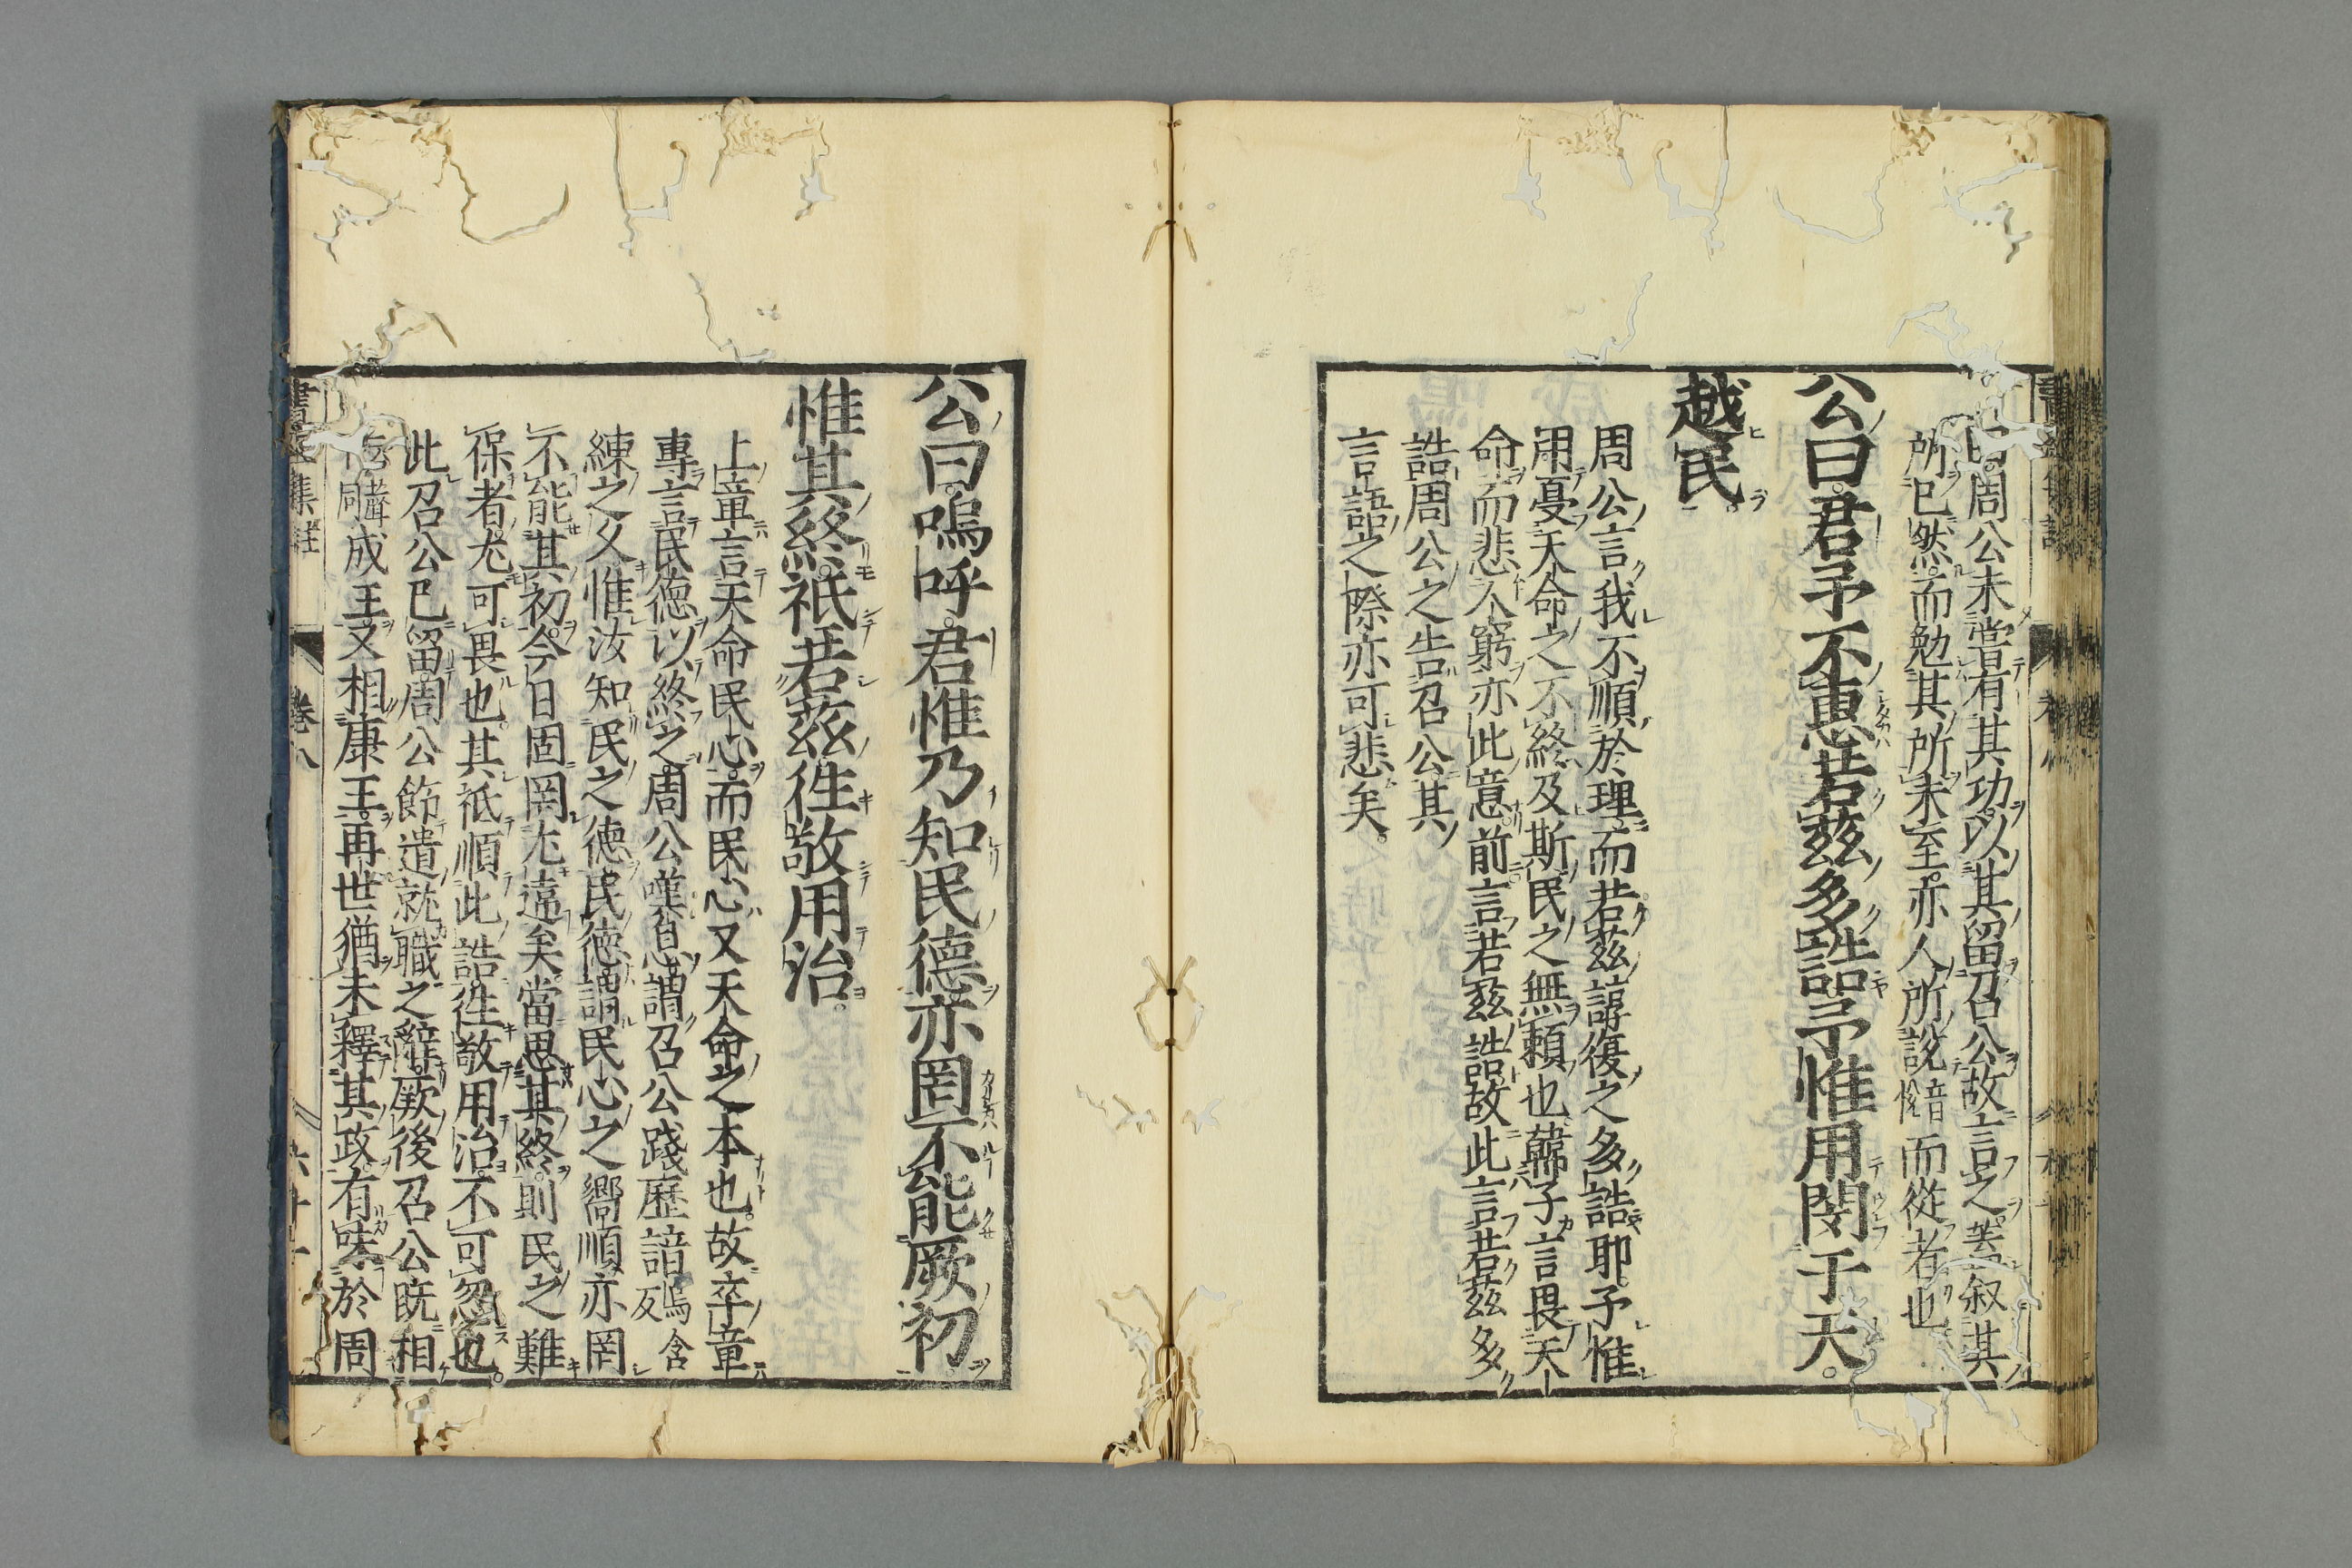 周公未嘗有其功以其留召公故言之蓋叙其
所已然而勉其所未至亦人所說愔而從者也
公曰君予不惠若茲多誥予惟用閔于天
越民
周公言我不順於理而若茲諄復之多誥耶予惟
用憂天命之不終及斯民之無賴也韓子言畏天
命而悲人窮亦此意前言若茲誥故此言若茲多
誥周公之告召公其
言語之際亦可悲矣
公曰嗚呼君惟乃知民德亦罔不能厥初
惟其終祗若茲徃敬用治
上章言天命民心而民心又天命之本也故卒章
專言民德以終之周公嘆息謂召公踐歷諳烏含反
練之久惟汝知民之德民德謂民心之嚮順亦罔
不能其初今日固罔尤違矣當思其終則民之難
保者尤可畏也其祗順此誥徃敬用治不可忽也
此召公已留周公飭遣就職之辭厥後召公既相
成王又相康王再世猶未釋其政有味於周
書經集註 卷八 六十一